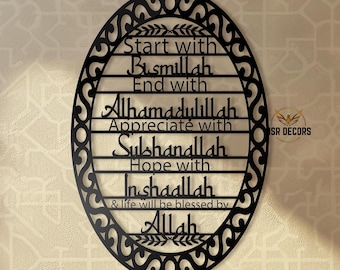 Start with
Bismillah
End with
Alhamadulillah
Appreciate with
Subhanallah
Hope with
Inshaallah
& life will be blessed by
Allah